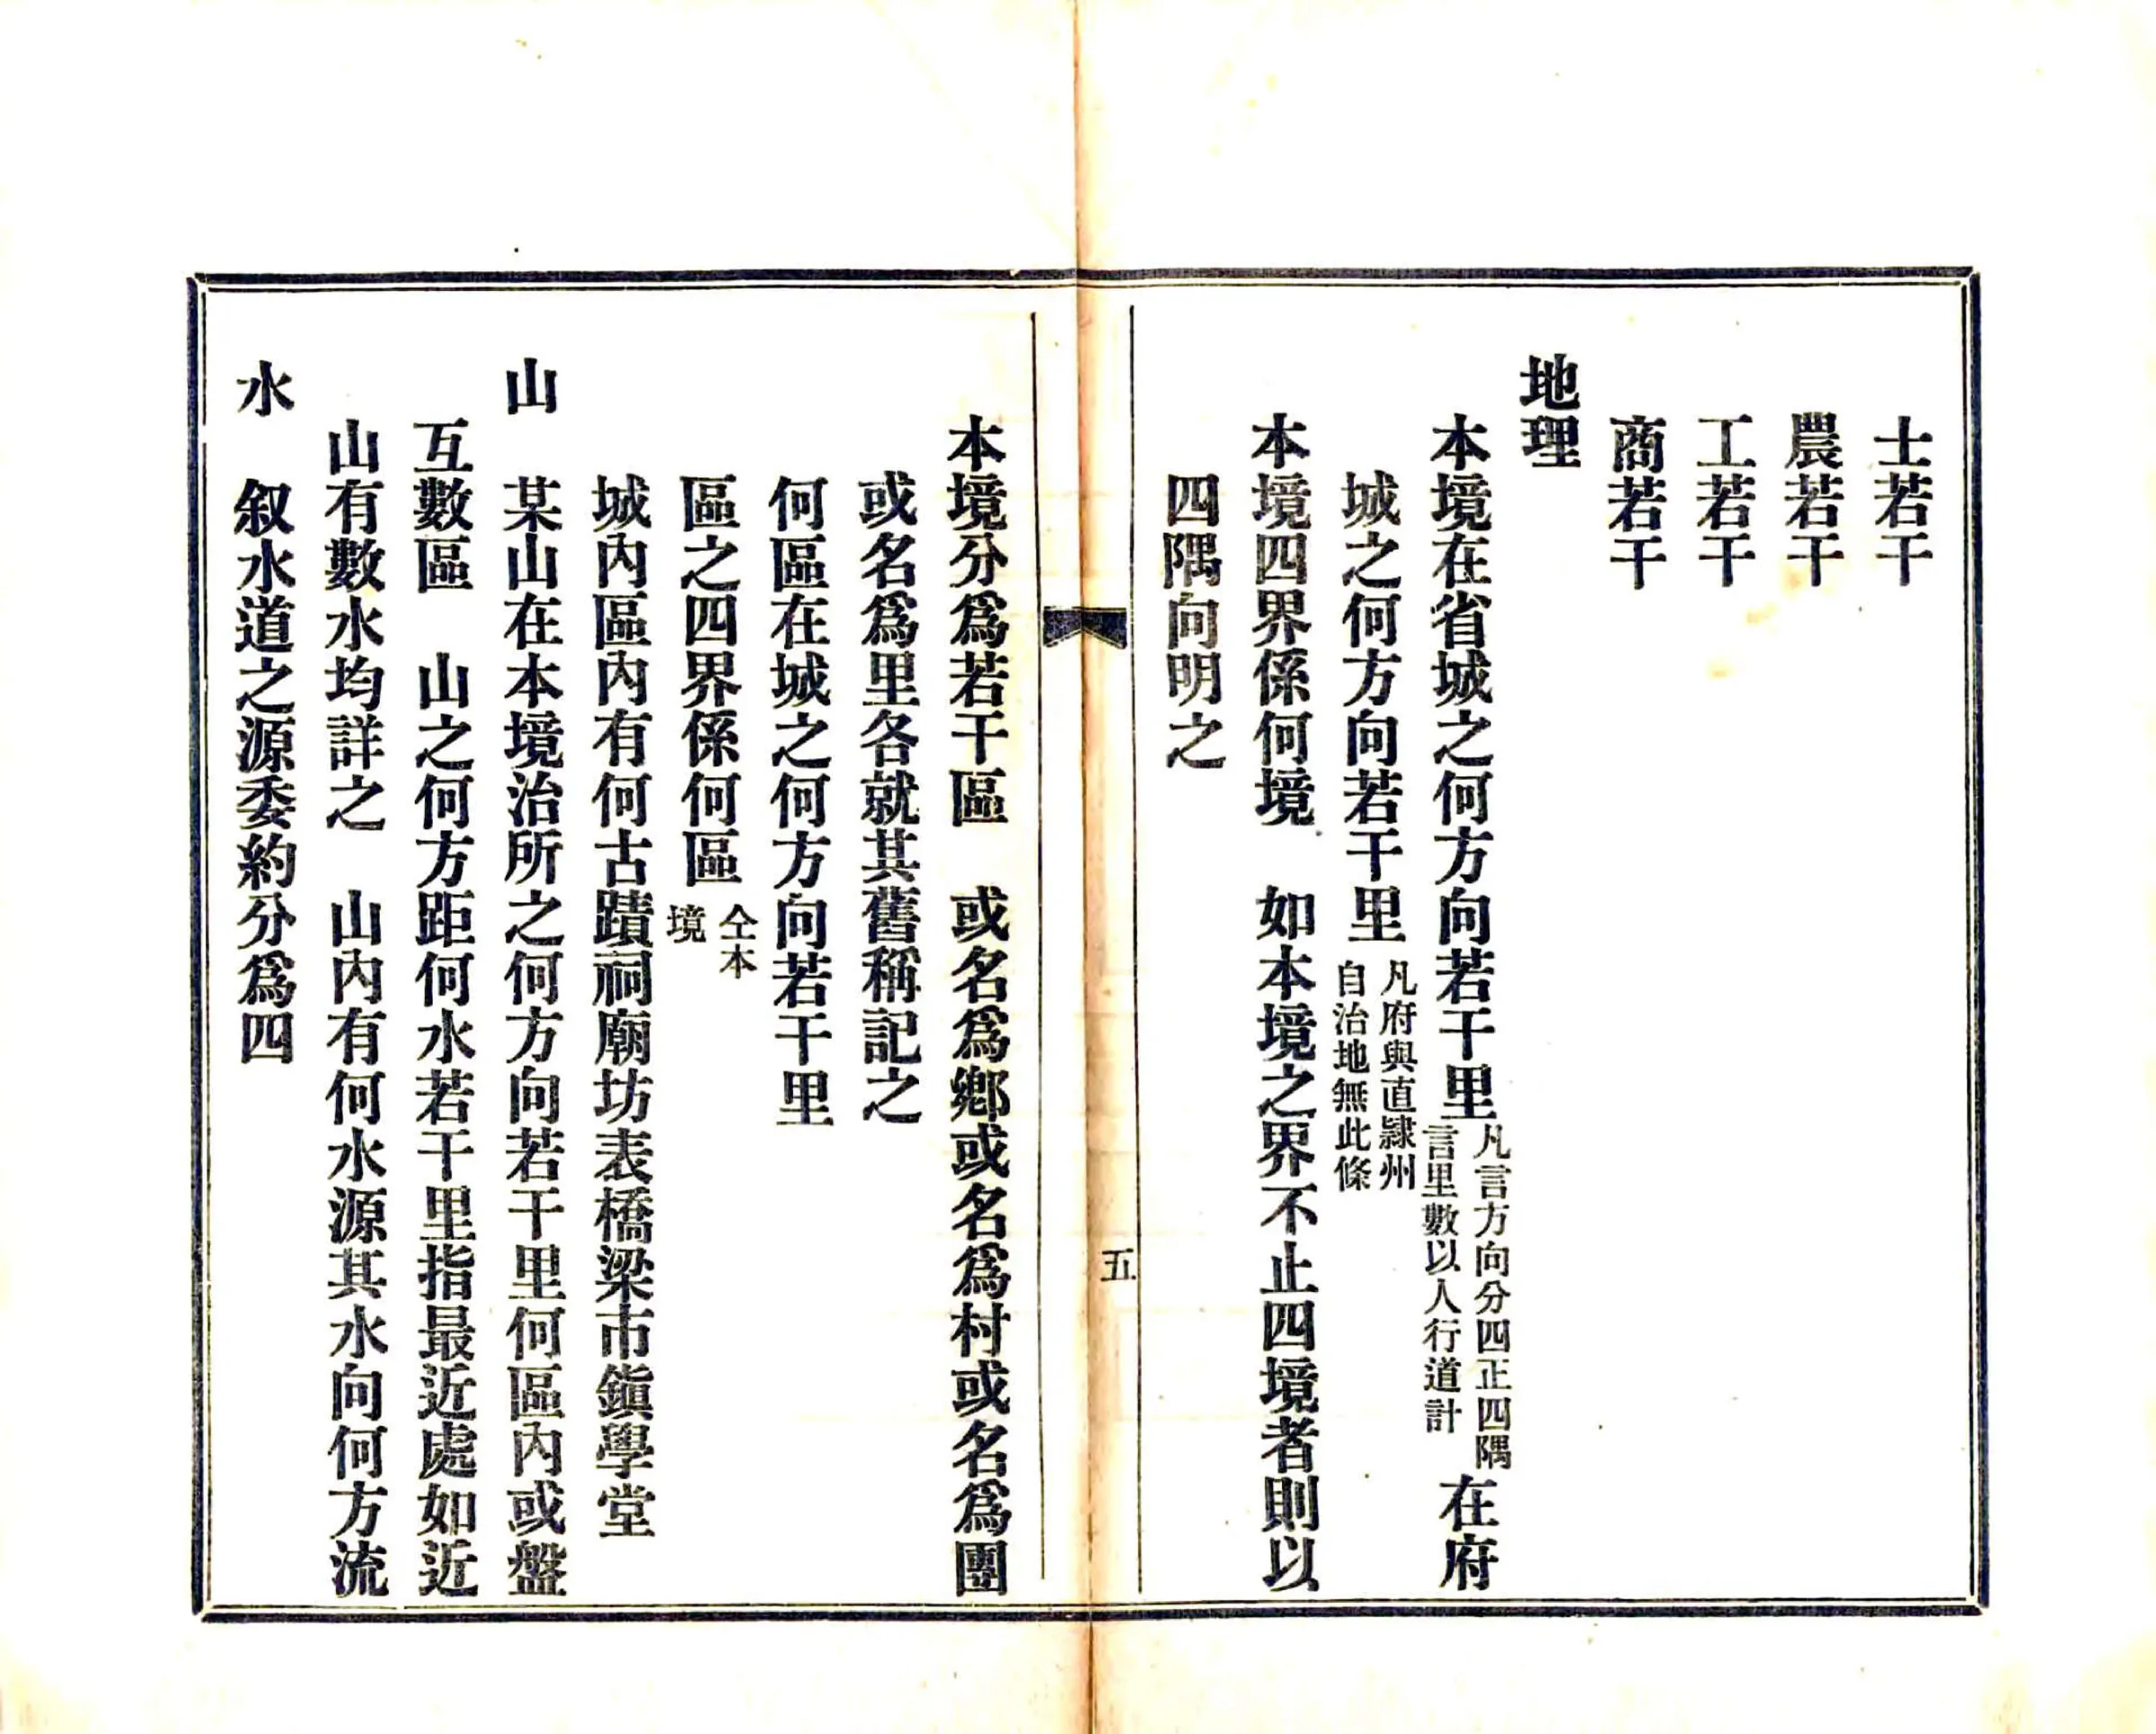 士若干
農若干
工若干
商若干
地理
本境在省城之何方向若干里凡言方向分四正四隅言里數以人行道計在府
城之何方向若干里凡府與直隸州自治地無此條
本境四界係何境　如本境之界不止四境者則以
四隅向明之
五
本境分爲若干區　或名爲鄉或名爲村或名爲團
或名爲里各就其舊稱記之
何區在城之何方向若干里
區之四界係何區仝本境
城內區內有何古蹟祠廟坊表橋梁市鎭學堂
山　某山在本境治所之何方向若干里何區內或盤
互數區　山之何方距何水若干里指最近處如近
山有數水均詳之　山內有何水源其水向何方流
水　叙水道之源委約分爲四